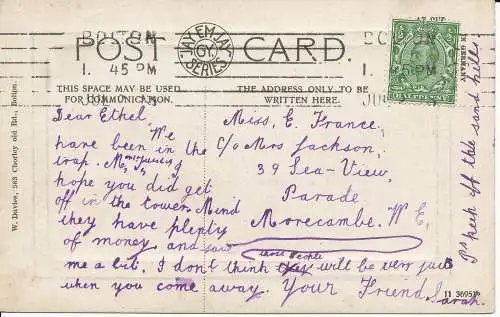 BOLTON
1. 45 PM
JAY-EM-JAY
SERIES
POST CARD.
THIS SPACE MAY BE USED
FOR COMMUNICATION.
THE ADDRESS ONLY TO BE
WRITTEN HERE.
W. Davies, 263 Chorley old Rd., Bolton.
Dear Ethel, We
have been in the
trap.
hope you did get
off in the tower. Mind
they have plenty
of money, and
me a bit. I don't think these people will be very
when you come away. Your Friend, Sarah.
Miss, E. France,
C/o Mrs Jackson,
39 Sea-View,
Parade
Morecambe. W. E.
Ps keep off the sand hills
11 36951